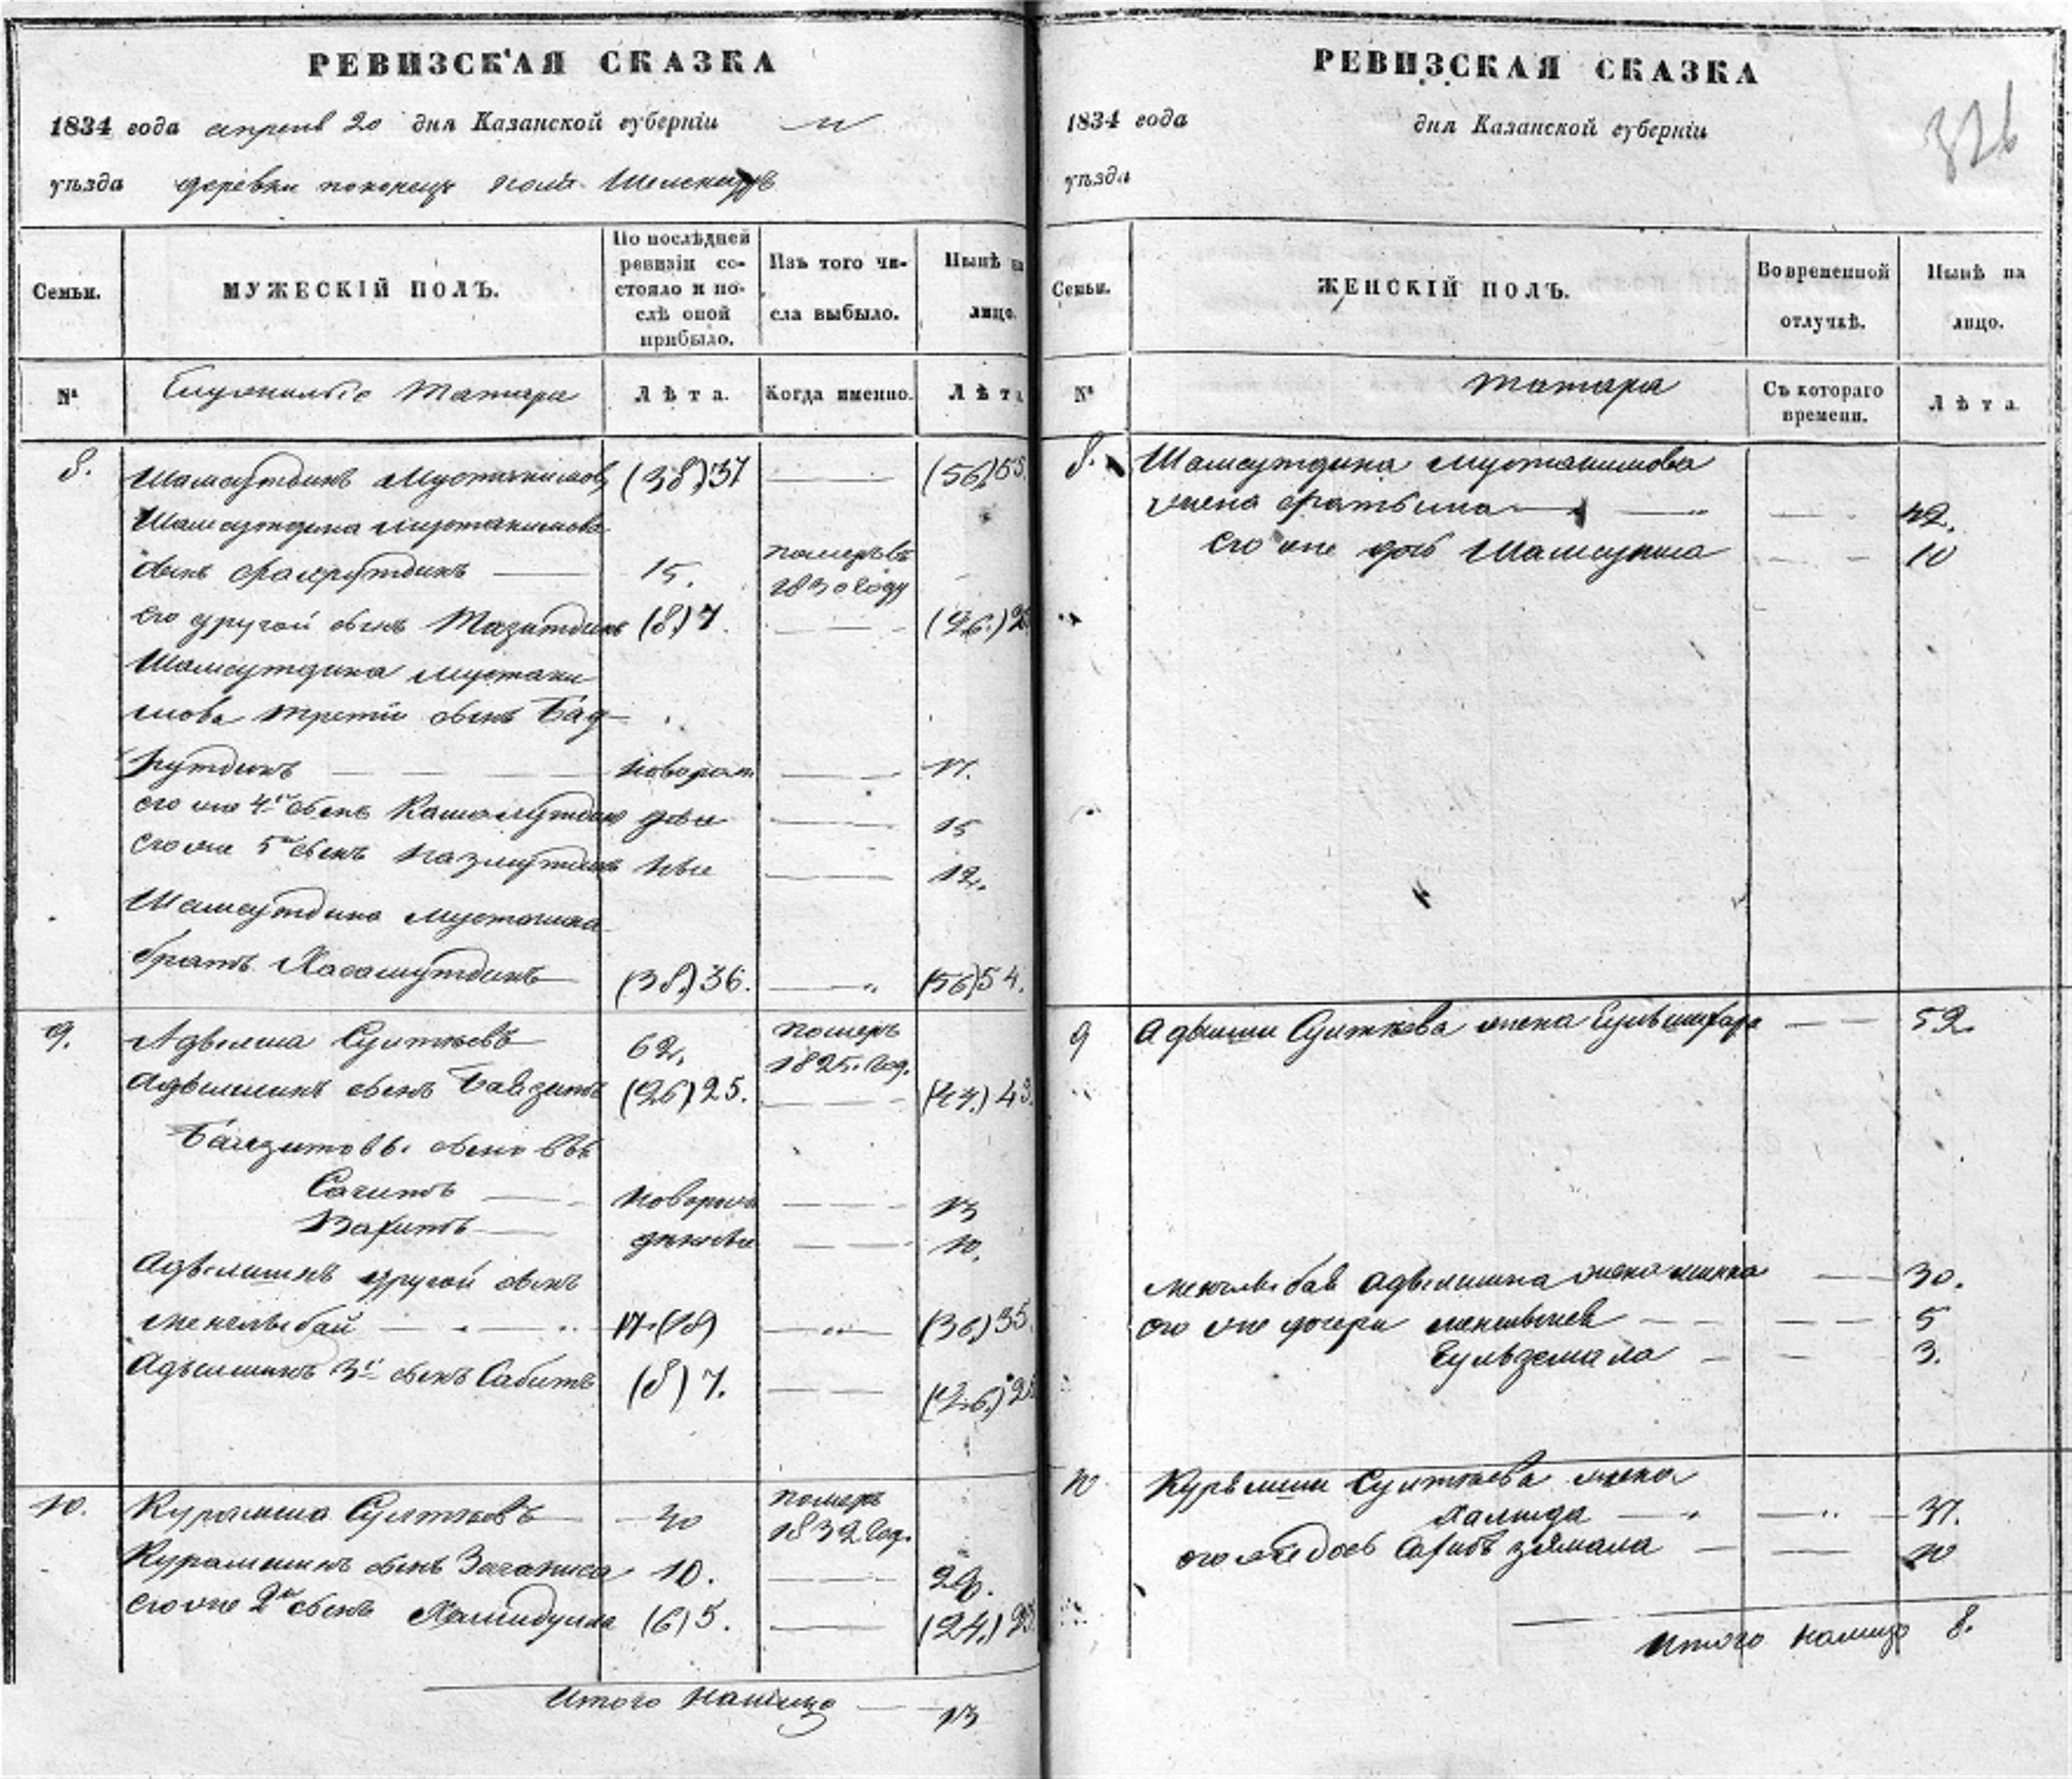 РЕВИЗСКАЯ СКАЗКА
1834 года апреля 20 дня Казанской губерніи
уѣзда деревни
Семьи.
МУЖЕСКІЙ ПОЛЪ.
По послѣдней ревизіи состояло и послѣ оной прибыло.
Изъ того числа выбыло.
Нынѣ на лицо.
№
Служилые Татара
Лѣта.
Когда именно.
Лѣта
8.
Шамсутдинъ Мустакимовъ (38) 37 (56) 55
Шамсутдина Мустакимова
сынъ Фахрутдинъ 15. померъ въ 1830 году
его другой сынъ (8) 7. (26.)
Шамсутдина Мустаки
мова третій сынъ Бад
рутдинъ новорож 17.
его же 4й сынъ Камалутдинъ дены 15
его же 5й сынъ Назмутдинъ ные 12.
Шамсутдина
братъ Хасамутдинъ (38.) 36. (56) 54.
9.
Адельша 62. померъ 1825. год.
Адельшинъ сынъ Баязитъ (26) 25. (44.) 43.
Баязитовы сыновья
Сагитъ новорож 13
Вахитъ денные 10.
Адельшинъ другой сынъ
Менглыбай 17 (18) (36) 35
Адельшинъ 3й сынъ Сабитъ (8) 7. (26.)
10.
Курамша померъ 1832 год.
Курамшинъ сынъ 10. 28.
его же 2й сынъ Хамидулла (6) 5. (24.)
Итого налицо 13
РЕВИЗСКАЯ СКАЗКА
326
1834 года дня Казанской губерніи
уѣзда
Семьи.
ЖЕНСКІЙ ПОЛЪ.
Во временной отлучкѣ.
Нынѣ на лицо.
№
татара
Съ котораго времени.
Лѣта.
8.
Шамсутдина Мустакимова
жена Фатьима 42.
его же дочь 10
9
Адельши жена 52.
Менглыбая Адельшина жена 30.
его же дочери 5
Гульземала 3.
10
Курамши жена
Халида 37.
его же дочь 10
Итого налицо 8.